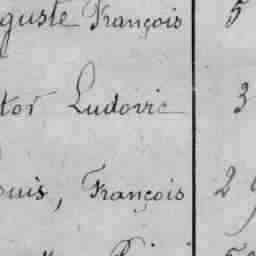 guste François 5
tor Ludovic 3
ouis, François 29